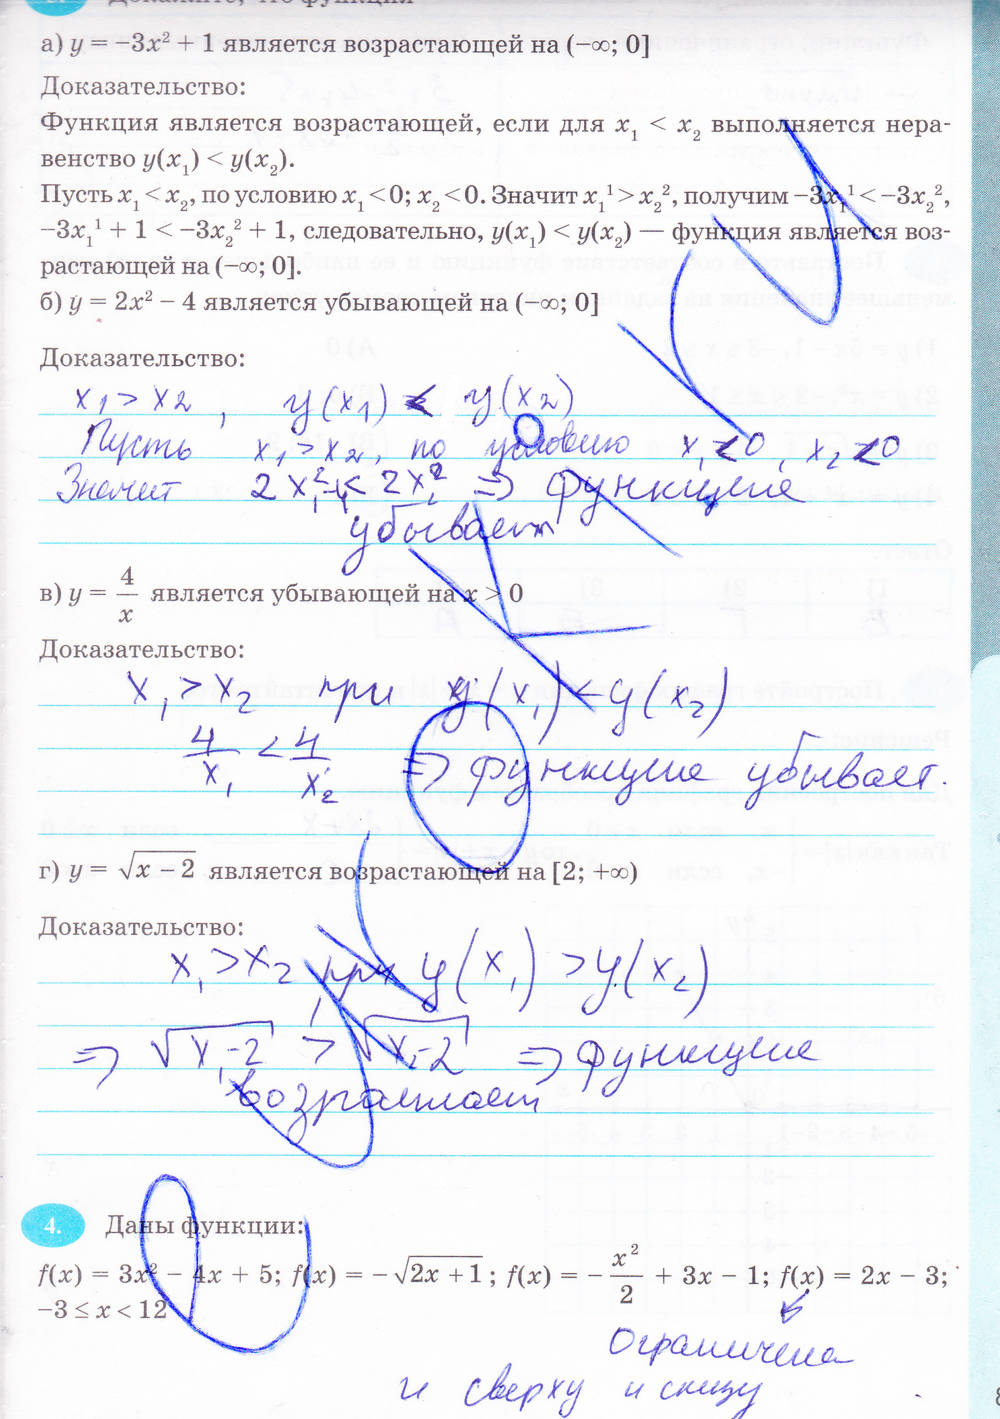 а) y = −3x² + 1 является возрастающей на (−∞; 0]
Доказательство:
Функция является возрастающей, если для x₁ < x₂ выполняется нера-
венство y(x₁) < y(x₂).
Пусть x₁ < x₂, по условию x₁ < 0; x₂ < 0. Значит x₁¹ > x₂², получим −3x₁¹ < −3x₂²,
−3x₁¹ + 1 < −3x₂² + 1, следовательно, y(x₁) < y(x₂) — функция является воз-
растающей на (−∞; 0].
б) y = 2x² − 4 является убывающей на (−∞; 0]
Доказательство:
x₁ > x₂ , y(x₁) < y(x₂)
Пусть x₁ > x₂, по условию x₁ < 0, x₂ < 0
Значит 2x₁² < 2x₂² ⇒ функция
убывает
в) y = 4/x является убывающей на x > 0
Доказательство:
x₁ > x₂ при y(x₁) < y(x₂)
4/x₁ < 4/x₂ ⇒ функция убывает.
г) y = √(x − 2) является возрастающей на [2; +∞)
Доказательство:
x₁ > x₂, при y(x₁) > y(x₂)
⇒ √(x₁−2) > √(x₂−2) ⇒ функция
возрастает
4. Даны функции:
f(x) = 3x² − 4x + 5; f(x) = −√(2x + 1); f(x) = −x²/2 + 3x − 1; f(x) = 2x − 3;
−3 ≤ x < 12
ограничена
и сверху и снизу